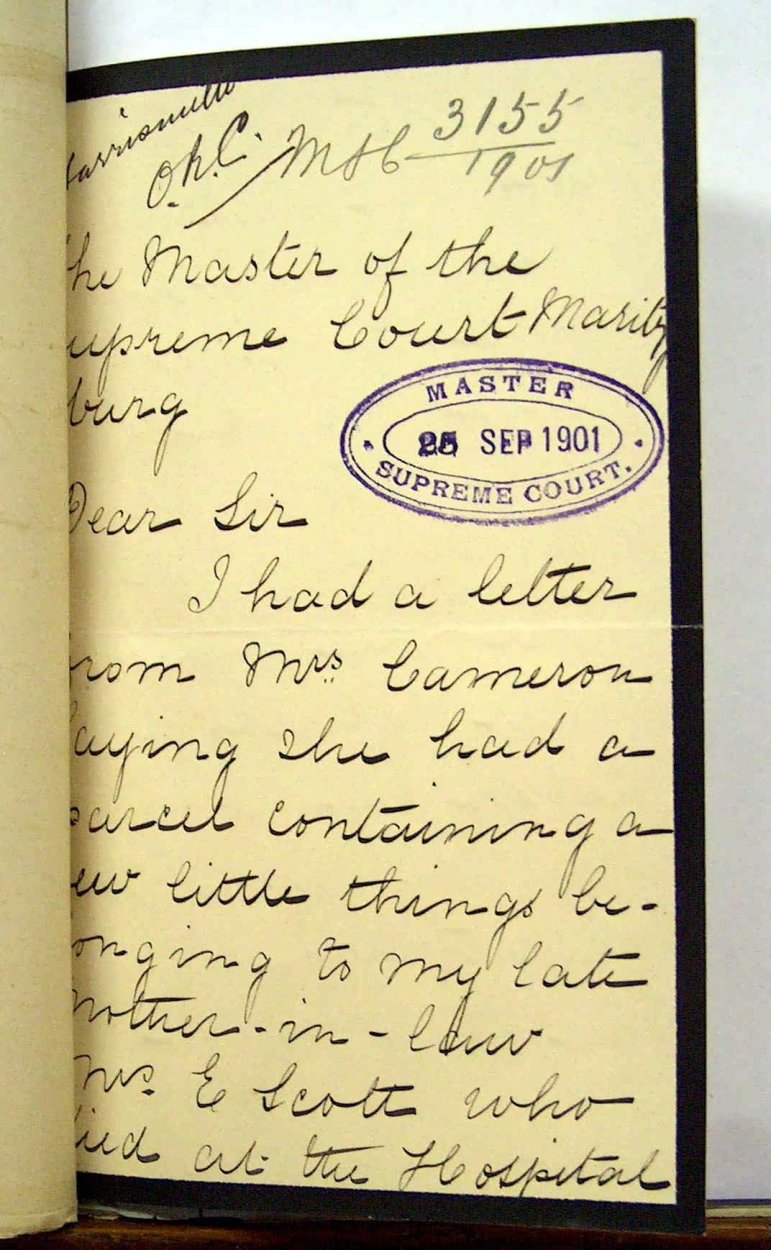 arrismith
O.R.C. MSC 3155
1901
he Master of the
upreme Court Maritz
burg
MASTER
25 SEP 1901
SUPREME COURT.
Dear Sir
I had a letter
from Mrs. Cameron
saying she had a
parcel containing a
few little things be-
longing to my late
mother-in-law
Mrs. E Scott who
died at the Hospital